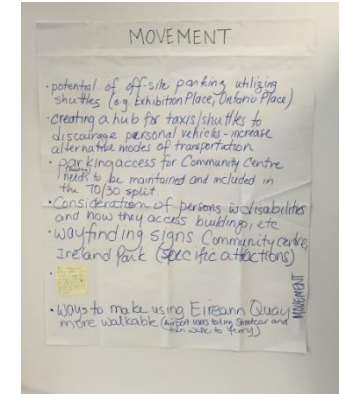 MOVEMENT
• potential of off-site parking utilizing
shuttles (e.g. Exhibition Place, Ontario Place)
• creating a hub for taxis/shuttles to
discourage personal vehicles - increase
alternative modes of transportation
• parking access for Community Centre
needs to be maintained and included in
the 70/30 split
• Consideration of persons w disabilities
and how they access buildings, etc
• Wayfinding signs Community Centre,
Ireland Park (specific attractions)
• Ways to make using Eireann Quay
more walkable (Airport users taking Streetcar and
then walk to ferry)
MOVEMENT